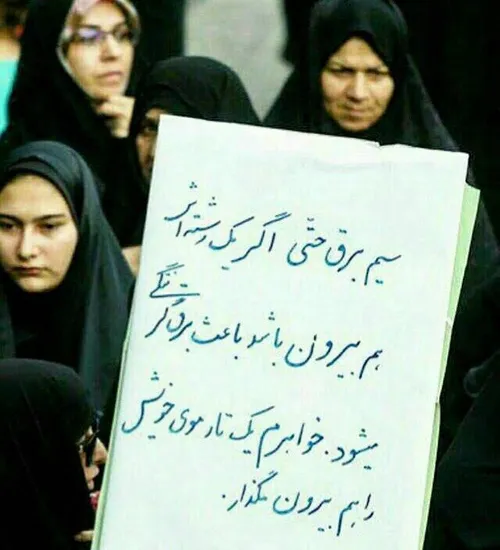 سیم برق حتّی اگر یک رشته‌اش
هم بیرون باشد باعث برق گرفتگی
میشود. خواهرم یک تار موی خویش
را هم بیرون مگذار.